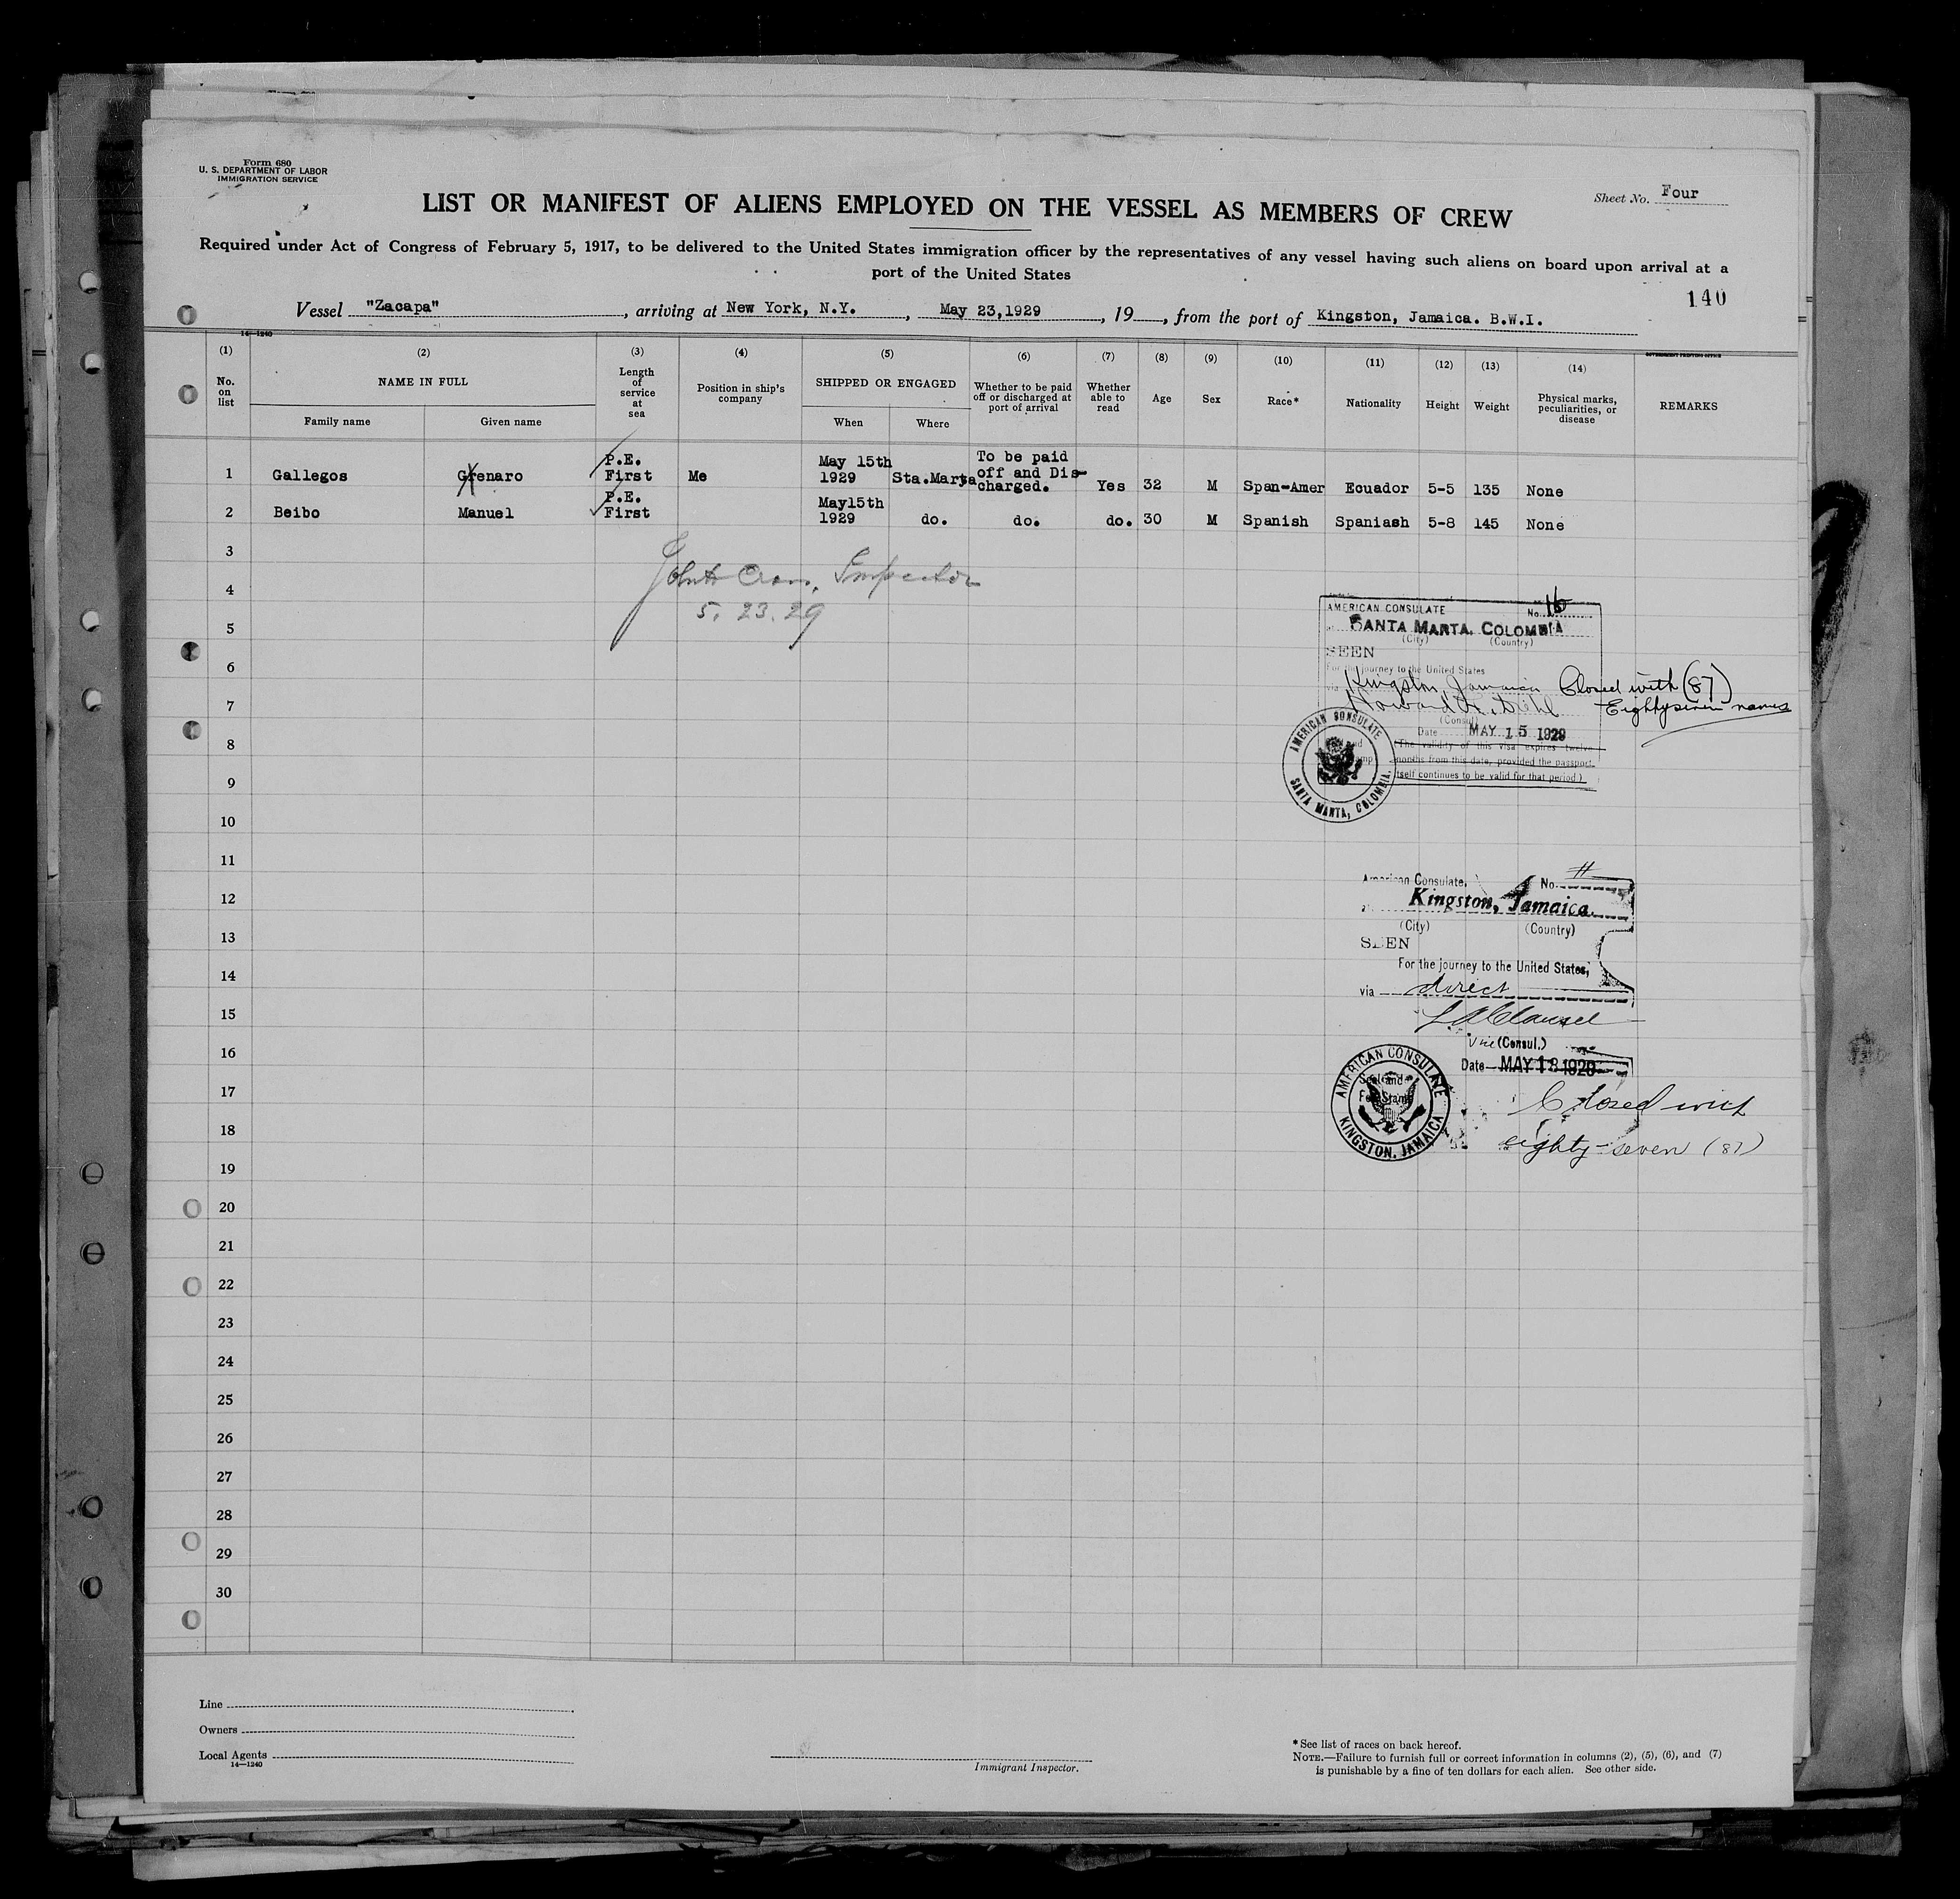 Form 680
U. S. DEPARTMENT OF LABOR
IMMIGRATION SERVICE
Sheet No. Four
LIST OR MANIFEST OF ALIENS EMPLOYED ON THE VESSEL AS MEMBERS OF CREW
Required under Act of Congress of February 5, 1917, to be delivered to the United States immigration officer by the representatives of any vessel having such aliens on board upon arrival at a
port of the United States
140
Vessel "Zacapa", arriving at New York, N.Y., May 23,1929, 19__, from the port of Kingston, Jamaica. B.W.I.
14—1240
GOVERNMENT PRINTING OFFICE
(1) (2) (3) (4) (5) (6) (7) (8) (9) (10) (11) (12) (13) (14)
No. on list
NAME IN FULL
Family name
Given name
Length of service at sea
Position in ship's company
SHIPPED OR ENGAGED
When
Where
Whether to be paid off or discharged at port of arrival
Whether able to read
Age
Sex
Race*
Nationality
Height
Weight
Physical marks, peculiarities, or disease
REMARKS
1 Gallegos Grenaro P.E. First Me May 15th 1929 Sta.Marta To be paid off and Dis-charged. Yes 32 M Span-Amer Ecuador 5-5 135 None
2 Beibo Manuel P.E. First May15th 1929 do. do. do. 30 M Spanish Spaniash 5-8 145 None
3
4
5
6
7
8
9
10
11
12
13
14
15
16
17
18
19
20
21
22
23
24
25
26
27
28
29
30
Inspector
5. 23. 29
AMERICAN CONSULATE No. 16
SANTA MARTA, COLOMBIA
(City) (Country)
SEEN
For the journey to the United States
via Kingston, Jamaica
Closed with (87)
Eightyseven names
(Consul)
Date MAY 15 1929
(The validity of this visa expires twelve
months from this date, provided the passport
itself continues to be valid for that period)
AMERICAN CONSULATE
SANTA MARTA, COLOMBIA.
American Consulate, No. 11
Kingston, Jamaica
(City) (Country)
SEEN
For the journey to the United States,
via direct
Vice (Consul.)
Date MAY 18 1929
AMERICAN CONSULATE
KINGSTON, JAMAICA
Seal and
Fee Stamp
Closed with
eighty-seven (87)
Line
Owners
Local Agents
14—1240
Immigrant Inspector.
*See list of races on back hereof.
NOTE.—Failure to furnish full or correct information in columns (2), (5), (6), and (7)
is punishable by a fine of ten dollars for each alien. See other side.